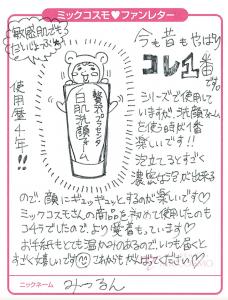 ミックコスモ♥ファンレター
敏感肌でも
だいじょーぶ♡
使用歴
4年!!
贅沢プラセンタ
白肌洗顔フォーム
今も昔もやっぱり
コレ1番
です。
シリーズで使用して
いますが、洗顔フォーム
を使う時が1番
楽しいです!!
泡立てるとすぐ
濃密な泡が出来る
ので、顔にギュギュッとするのが楽しいです♡
ミックコスモさんの商品を初めて使用したのも
コイラでしたので、より愛着もっています♡
お手紙もとても温かみのあるので、いつも届くと
すごく嬉しいです これからもがんばってください♡
ニックネーム みつるん